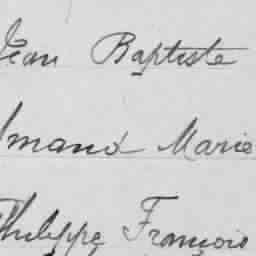 Jean Baptiste
Amand Marie
Philippe François